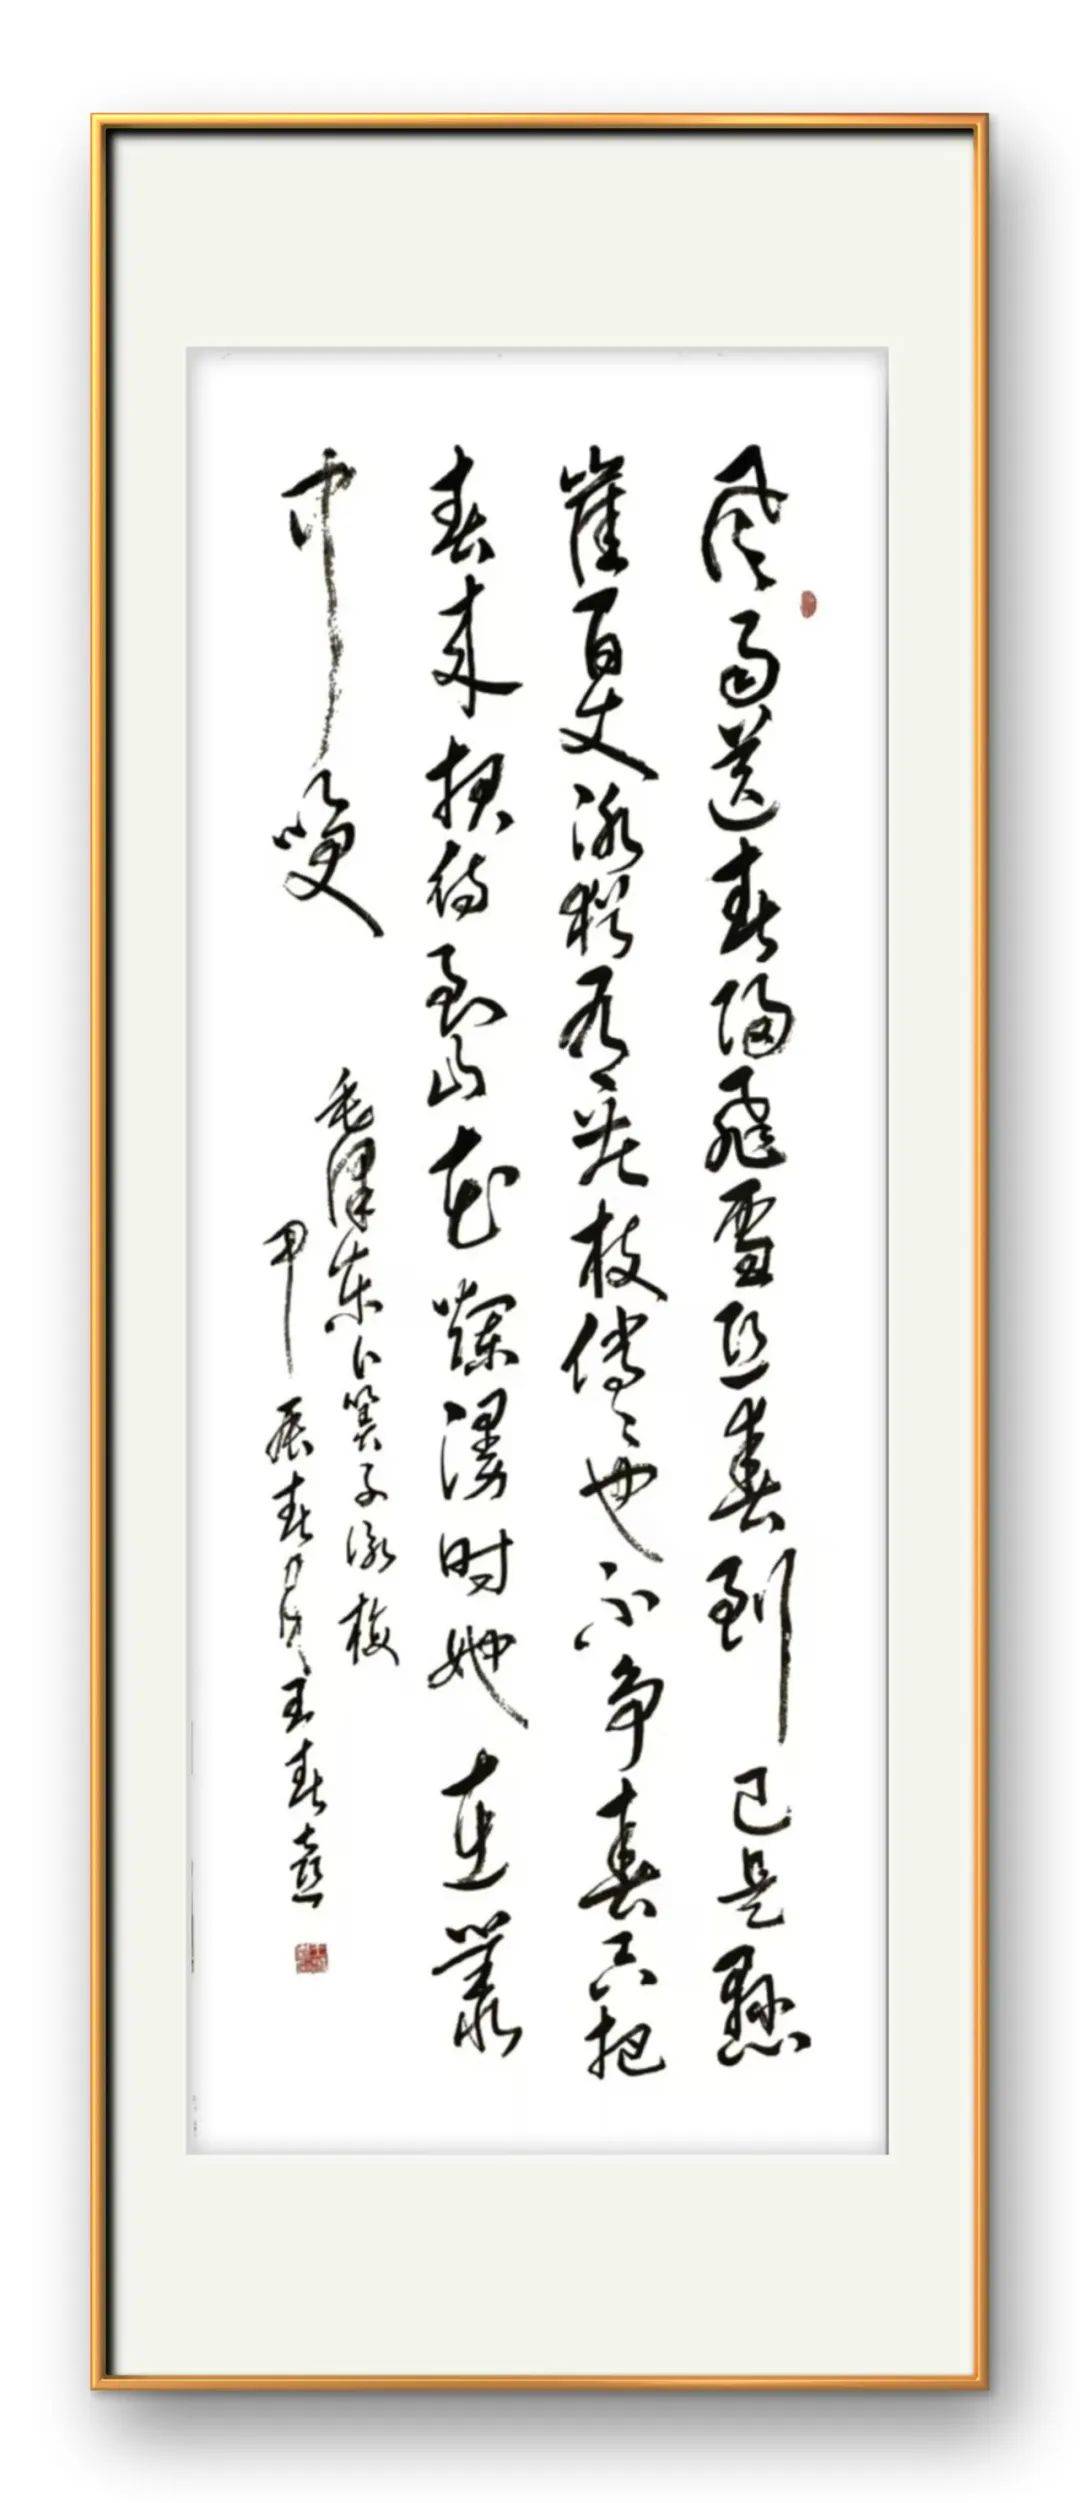 风雨送春归飛雪迎春到已是懸
崖百丈冰犹有花枝俏々也不争春只把
春来报待到山花爛漫时她在叢
中笑
毛泽东卜算子咏梅
甲辰春月王春